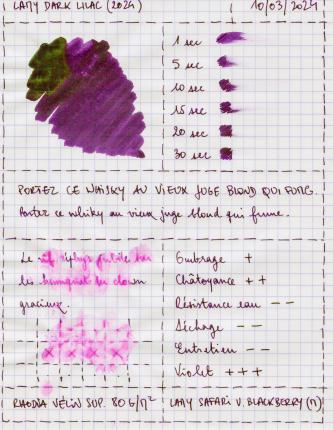 LAMY DARK LILAC (2024)
10/03/2024
1 sec
5 sec
10 sec
15 sec
20 sec
30 sec
PORTEZ CE WHISKY AU VIEUX JUGE BLOND QUI FUME.
Portez ce whisky au vieux juge blond qui fume.
Le vif zéphyr jubile sur
les kumquats du clown
gracieux.
Ombrage +
Châtoyance ++
Résistance eau --
Séchage --
Entretien --
Violet +++
RHODIA VÉLIN SUP. 80 G/M²
LAMY SAFARI V. BLACKBERRY (M)